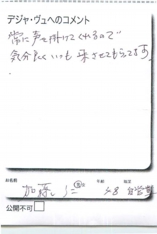 デジャ・ヴュへのコメント
常に声を掛けてくれるので
気分良くいつも来させてもらってます。
お名前
年齢
職業
加藤
自営業
公開不可